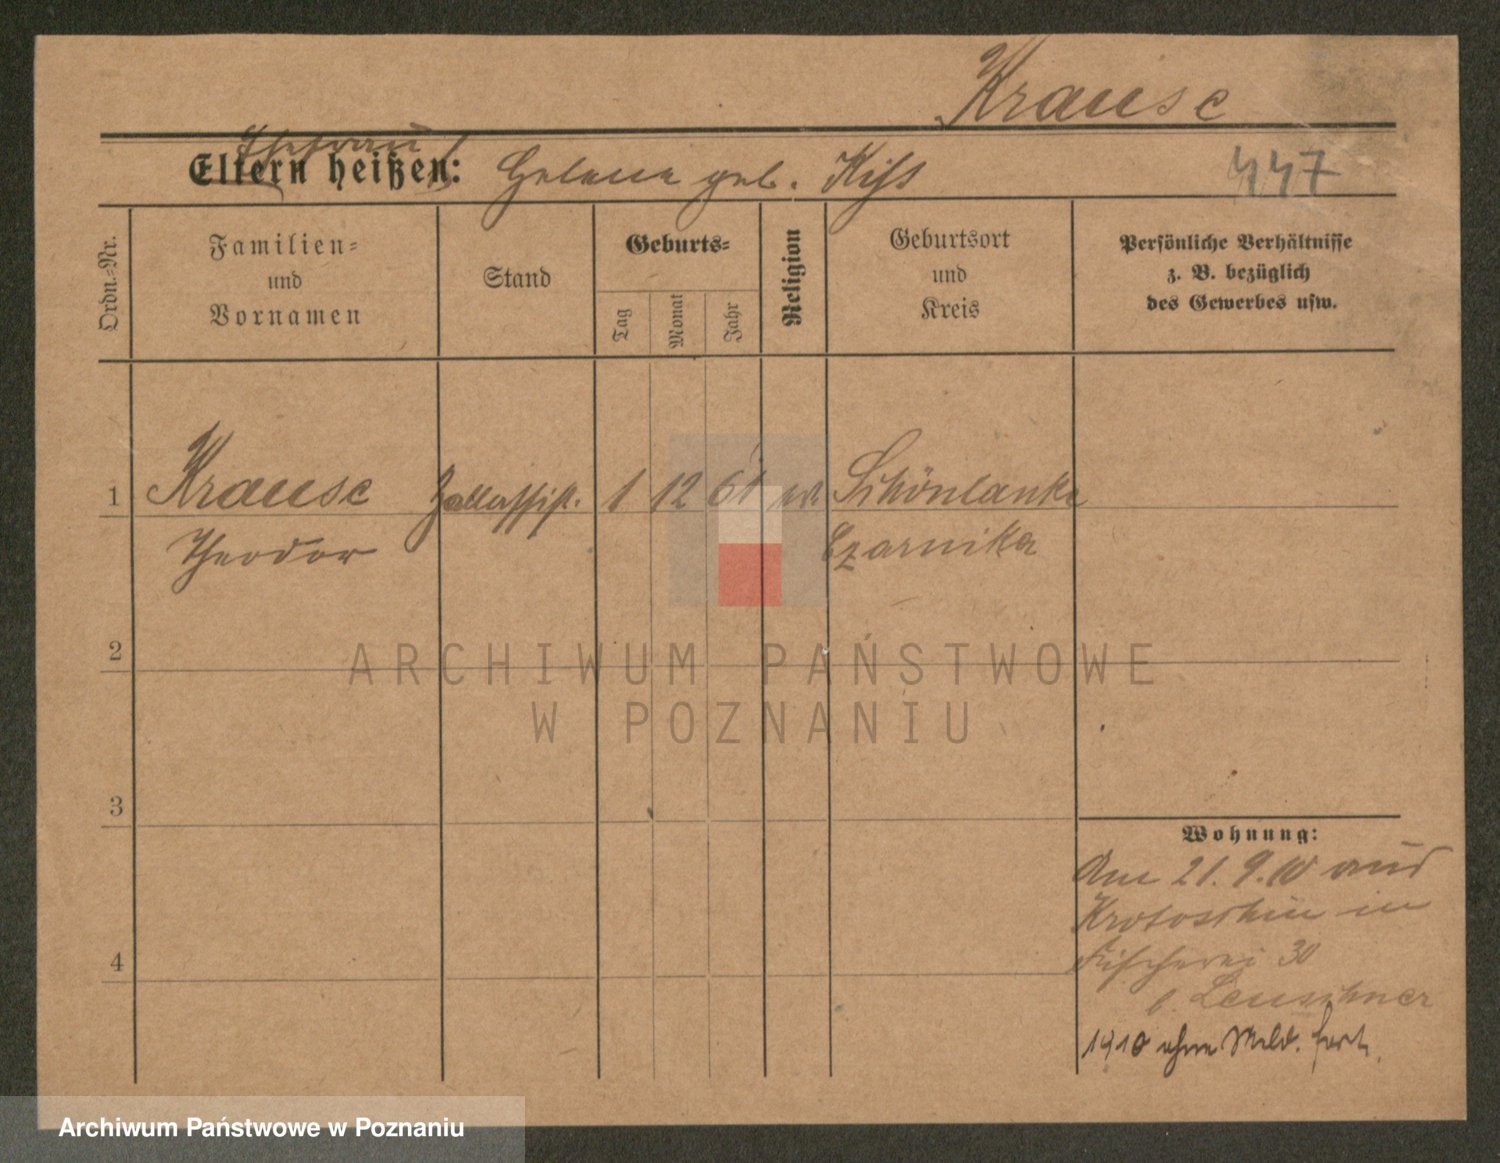 Krause
Ehefrau
Eltern heißen: Helene geb.
447
Ordn.-Nr.
Familien-
und
Vornamen
Stand
Geburts-
Tag
Monat
Jahr
Religion
Geburtsort
und
Kreis
Persönliche Verhältnisse
z. B. bezüglich
des Gewerbes usw.
1 Krause 1 12 61 Schönlanke
Theodor Czarnika
2
3
4
Wohnung:
Am 21. 9. 10 aus
Krotoschin in
Fischerei 30
b. Leuschner
1910 ohne Meld. fort.
ARCHIWUM PAŃSTWOWE
W POZNANIU
Archiwum Państwowe w Poznaniu